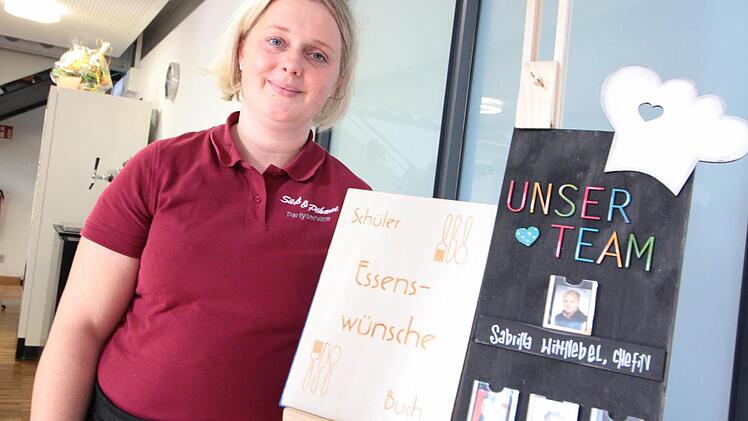 Süß & Pikant
Partyservice
Schüler
Essens-
wünsche
Buch
UNSER
TEAM
Sabrina Wittlebel, Chefin